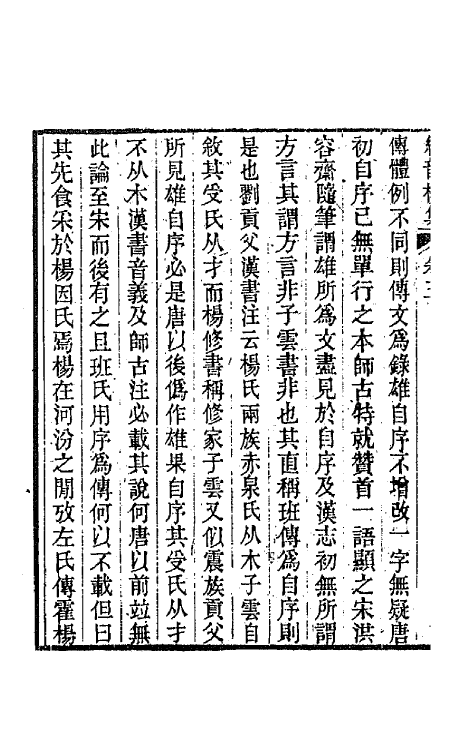 傳體例不同則傳文爲錄雄自序不增改一字無疑唐
初自序已無單行之本師古特就贊首一語顯之宋洪
容齋隨筆謂雄所爲文盡見於自序及漢志初無所謂
方言其謂方言非子雲書非也其直稱班傳爲自序則
是也劉貢父漢書注云楊氏兩族赤泉氏从木子雲自
敘其受氏从才而楊修書稱修家子雲又似震族貢父
所見雄自序必是唐以後僞作雄果自序其受氏从才
不从木漢書音義及師古注必載其說何唐以前竝無
此論至宋而後有之且班氏用序爲傳何以不載但曰
其先食采於楊因氏焉楊在河汾之閒攷左氏傳霍楊